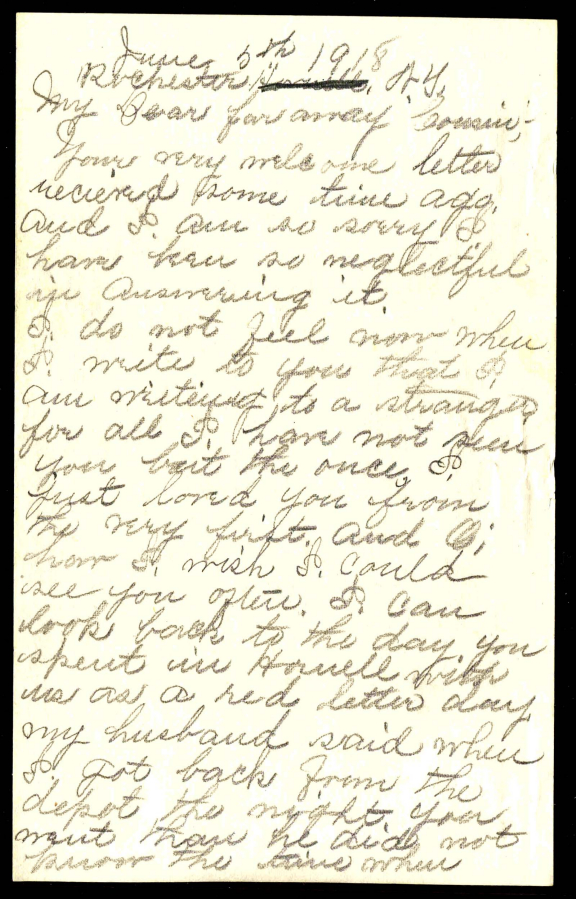 June 5th 1918
Rochester Hornell, N.Y.
My Dear far away Cousin;-
Your very welcome letter
recieved some time ago,
and I am so sorry I
have been so neglectful
in answering it.
I do not feel now when
I write to you that I
am writeing to a stranger
for all I have not seen
you but the once, I
just loved you from
the very first. and O;
how I wish I could
see you often. I can
look back to the day you
spent in Hornell with
us as a red letter day,
my husband said when
I got back from the
depot the night you
went than he did not
know the time when